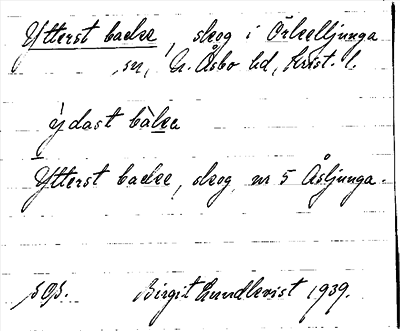 Ytterst backe, skog i Örkelljunga
sn, N. Åsbo hd, Krist. l.
ýdast bàka
Ytterst backe, skog, nr 5 Åsljunga.
Birgit Lundkvist 1939.